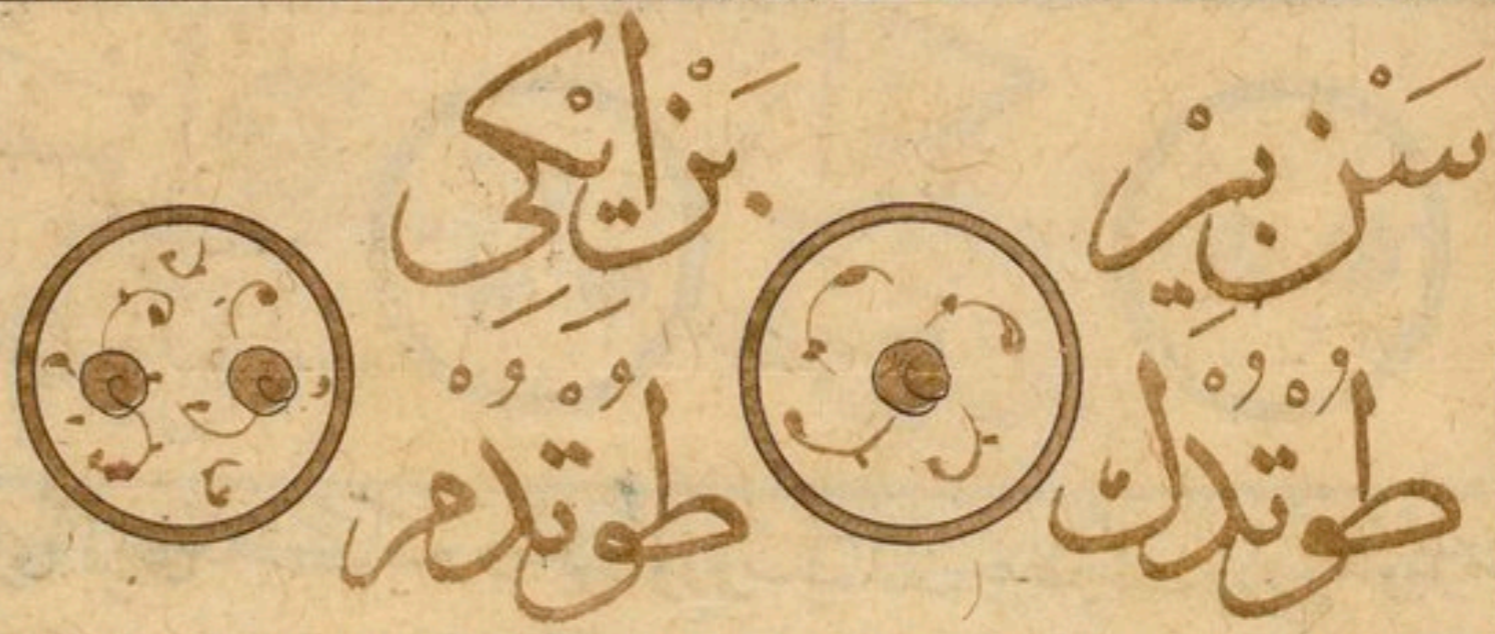 سَنْ بِيرْ
طُوْتْدُڭْ
بَنْ اِيْكِي
طُوْتْدُمْ